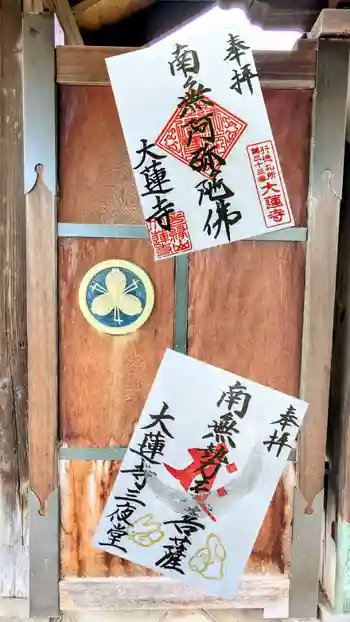 奉拝
南無阿弥陀佛
大蓮寺
行基札所
第三十三番
大蓮寺
奉拝
南無勢至菩薩
大蓮寺三夜堂